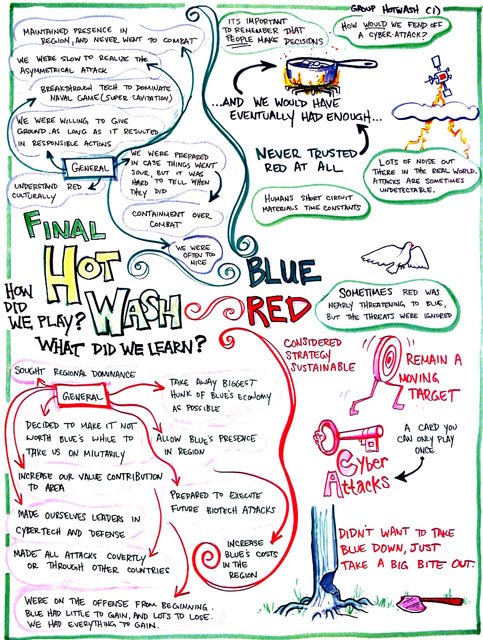 GROUP HOTWASH (1)
MAINTAINED PRESENCE IN
REGION, AND NEVER WENT TO COMBAT
WE WERE SLOW TO REALIZE THE
ASYMMETRICAL ATTACK
BREAKTHROUGH TECH TO DOMINATE
NAVAL GAME (SUPER CAVITATION)
WE WERE WILLING TO GIVE
GROUND, AS LONG AS IT RESULTED
IN RESPONSIBLE ACTIONS
GENERAL
UNDERSTAND RED
CULTURALLY
WE WERE PREPARED
IN CASE THINGS WENT
SOUR, BUT IT WAS
HARD TO TELL WHEN
THEY DID
CONTAINMENT OVER
COMBAT
WE WERE
OFTEN TOO
NICE
IT'S IMPORTANT
TO REMEMBER THAT
PEOPLE MAKE DECISIONS
...AND WE WOULD HAVE
EVENTUALLY HAD ENOUGH...
NEVER TRUSTED
RED AT ALL
HUMANS SHORT CIRCUIT
MATERIALS TIME CONSTANTS
HOW WOULD WE FEND OFF
A CYBER-ATTACK?
LOTS OF NOISE OUT
THERE IN THE REAL WORLD.
ATTACKS ARE SOMETIMES
UNDETECTABLE.
FINAL
HOT
WASH
HOW
DID
WE PLAY?
WHAT DID WE LEARN?
BLUE
RED
SOMETIMES RED WAS
NEARLY THREATENING TO BLUE,
BUT THE THREATS WERE IGNORED
SOUGHT REGIONAL DOMINANCE
GENERAL
TAKE AWAY BIGGEST
HUNK OF BLUE'S ECONOMY
AS POSSIBLE
DECIDED TO MAKE IT NOT
WORTH BLUE'S WHILE TO
TAKE US ON MILITARILY
ALLOW BLUE'S PRESENCE
IN REGION
INCREASE OUR VALUE CONTRIBUTION
TO AREA
PREPARED TO EXECUTE
FUTURE BIOTECH ATTACKS
MADE OURSELVES LEADERS IN
CYBERTECH AND DEFENSE
MADE ALL ATTACKS COVERTLY
OR THROUGH OTHER COUNTRIES
INCREASE
BLUE'S COSTS
IN THE
REGION
WERE ON THE OFFENSE FROM BEGINNING.
BLUE HAD LITTLE TO GAIN, AND LOTS TO LOSE.
WE HAD EVERYTHING TO GAIN.
CONSIDERED
STRATEGY
SUSTAINABLE
REMAIN A
MOVING
TARGET
CYBER
ATTACKS
A CARD YOU
CAN ONLY PLAY
ONCE
DIDN'T WANT TO TAKE
BLUE DOWN, JUST
TAKE A BIG BITE OUT.